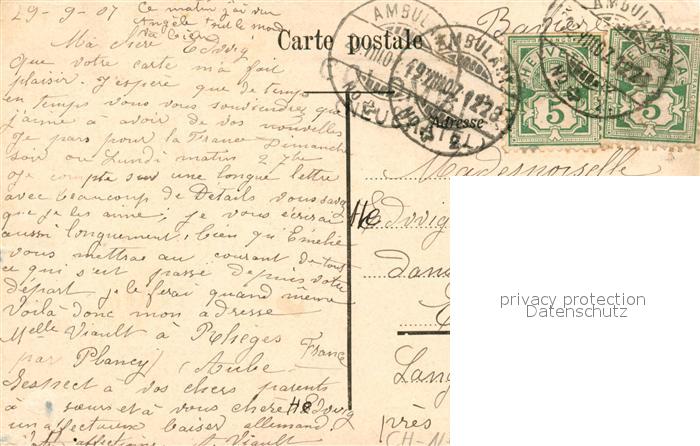 29-9-07 Ce matin j'ai vu
Angèle tout le monde
va bien
Ma chère Edwig
Que votre carte m'a fait
plaisir. J'espère que de temps
en temps vous vous souviendrez que
j'aime à avoir de vos nouvelles
Je pars pour la France Dimanche
soir ou Lundi matin 2 7bre
Je compte sur une longue lettre
avec beaucoup de Détails vous savez
que je les aime; je vous écrirai
aussi longuement, bien qu'Emélie
vous mettrae au courant de tout
ce qui s'est passé depuis votre
départ, je le ferai quand même
Voilà donc mon adresse
Melle Viault à Rhèges
par Plancy (Aube) France
Respect à vos chers parents
à sœurs et à vous chère Hedwig
un affectueux baiser allemand.
A. Viault
Carte postale
Adresse
AMBULANT
AMBULANT
AMBULANT
No 2
HELVETIA
5
HELVETIA
5
Mademoiselle
Hedwig
Dans
Lang
près
CH-N
privacy protection
Datenschutz